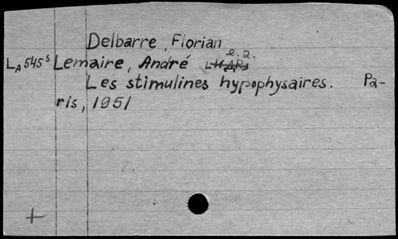 Delbarre, Florian
e.a.
LA545s Lemaire, André
Les stimulines hypophysaires. Pa-
ris, 1951